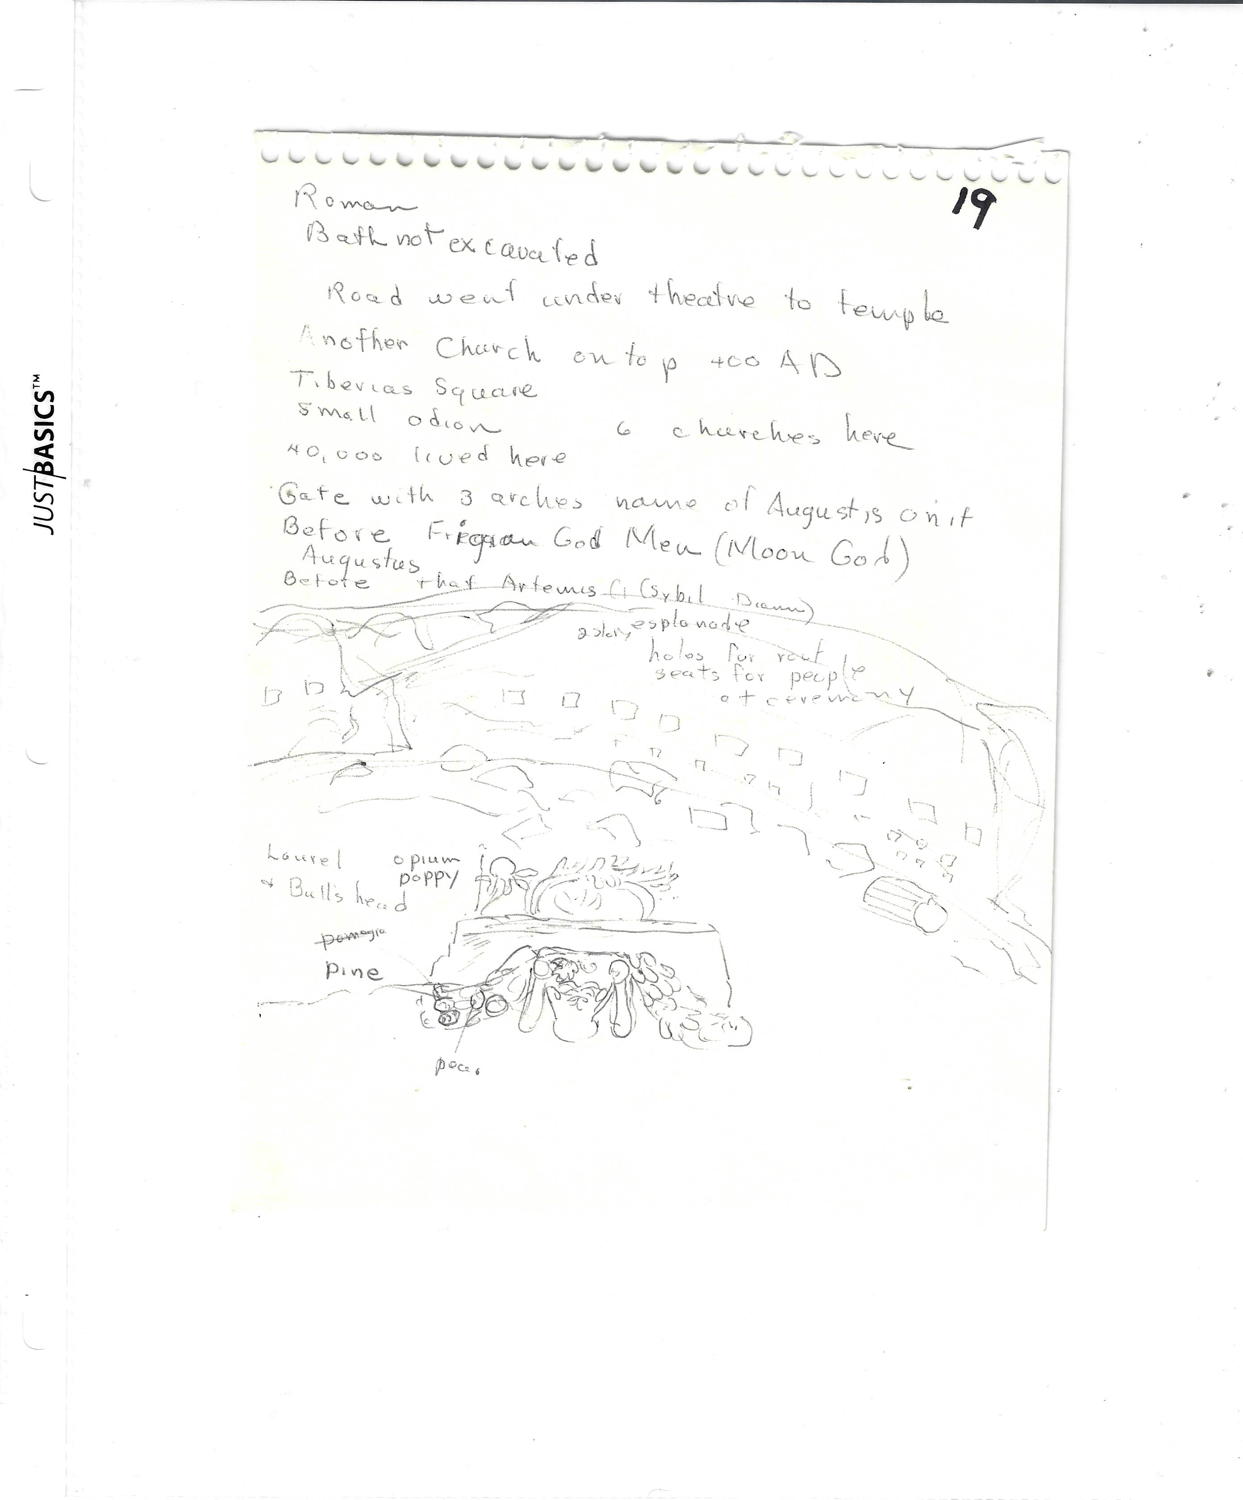 JUSTBASICS™
19
Roman
Bath not excavated
Road went under theatre to temple
Another Church on top 400 AD
Tiberias Square
Small odion 6 churches here
40,000 lived here
Gate with 3 arches name of August,s on it
Before Frigian God Men (Moon God)
Augustus
Before that Artemis (Sybil Diann)
2 story esplanade
holes for roof
seats for people
at ceremony
Laurel opium
poppy
+ Bull's head
Pine